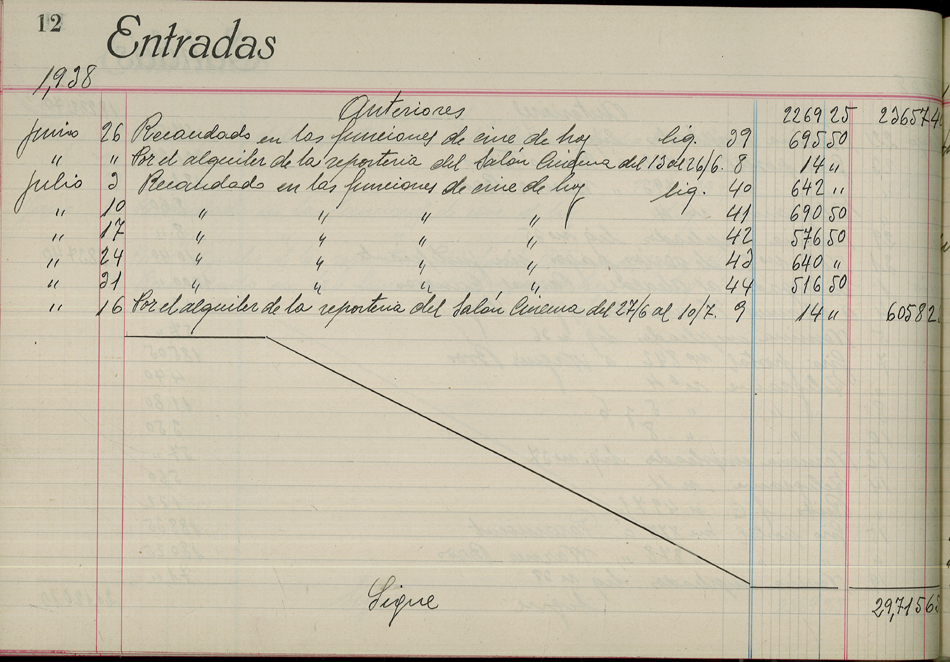 12 Entradas
1,938
Anteriores 2269 25 236574
Junio 26 Recaudado en las funciones de cine de hoy liq. 39 695 50
" " Por el alquiler de la reposteria del Salón Cinema del 13 al 26/6. 8 14 "
Julio 3 Recaudado en las funciones de cine de hoy liq. 40 642 "
" 10 " " " " 41 690 50
" 17 " " " " 42 576 50
" 24 " " " " 43 640 "
" 31 " " " " 44 516 50
" 16 Por el alquiler de la reposteria del Salón Cinema del 27/6 al 10/7. 9 14 " 60582
Sigue 29,7156